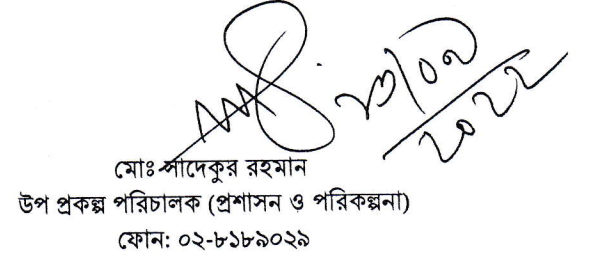 ২০২২
মোঃ সাদেকুর রহমান
উপ প্রকল্প পরিচালক (প্রশাসন ও পরিকল্পনা)
ফোন: ০২-৮১৮৯০২৯